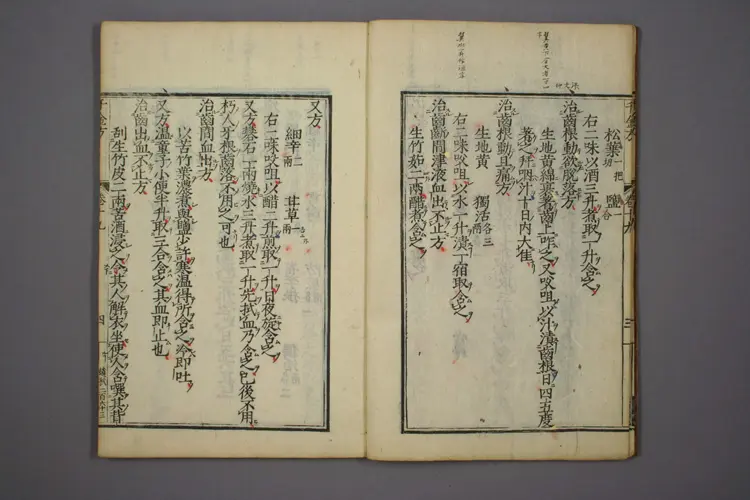 松葉一把切 鹽一合
右二味以酒三升煮取一升含之
治齒根動欲脫落方
生地黃綿裹著齒上咋之又㕮咀以汁漬齒根日四五度
著之并咽汁十日内大佳
治齒根動且痛方
生地黃 獨活各三兩
右二味㕮咀以水一升漬一宿取含之
治齒齗間津液血出不止方
生竹茹二兩醋煮含之
又方
細辛二兩 甘草一兩
右二味㕮咀以醋二升煎取一升日夜旋含之
又方礬石一兩燒水三升煮取一升先拭血乃含之已後不用
朽人牙根齒落不用之可也
治齒間血出方
以苦竹葉濃煮與鹽少許寒温得所含之冷即吐
又方温童子小便半升取三合含之其血即止也
治齒出血不止方
刮生竹皮二兩苦酒浸之令其人解衣坐使人含噀其背
千金方
卷十九
四